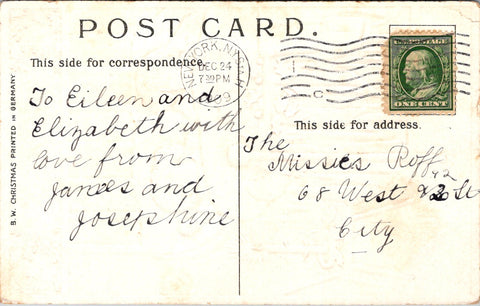 POST CARD.
This side for correspondence.
NEW YORK, N.Y.
DEC 24
7 30 PM
9
C
U.S. POSTAGE
ONE CENT
B. W. CHRISTMAS PRINTED IN GERMANY
To Eileen and
Elizabeth with
love from
James and
Josephine
This side for address.
The
Missies Roff
68 West St
City